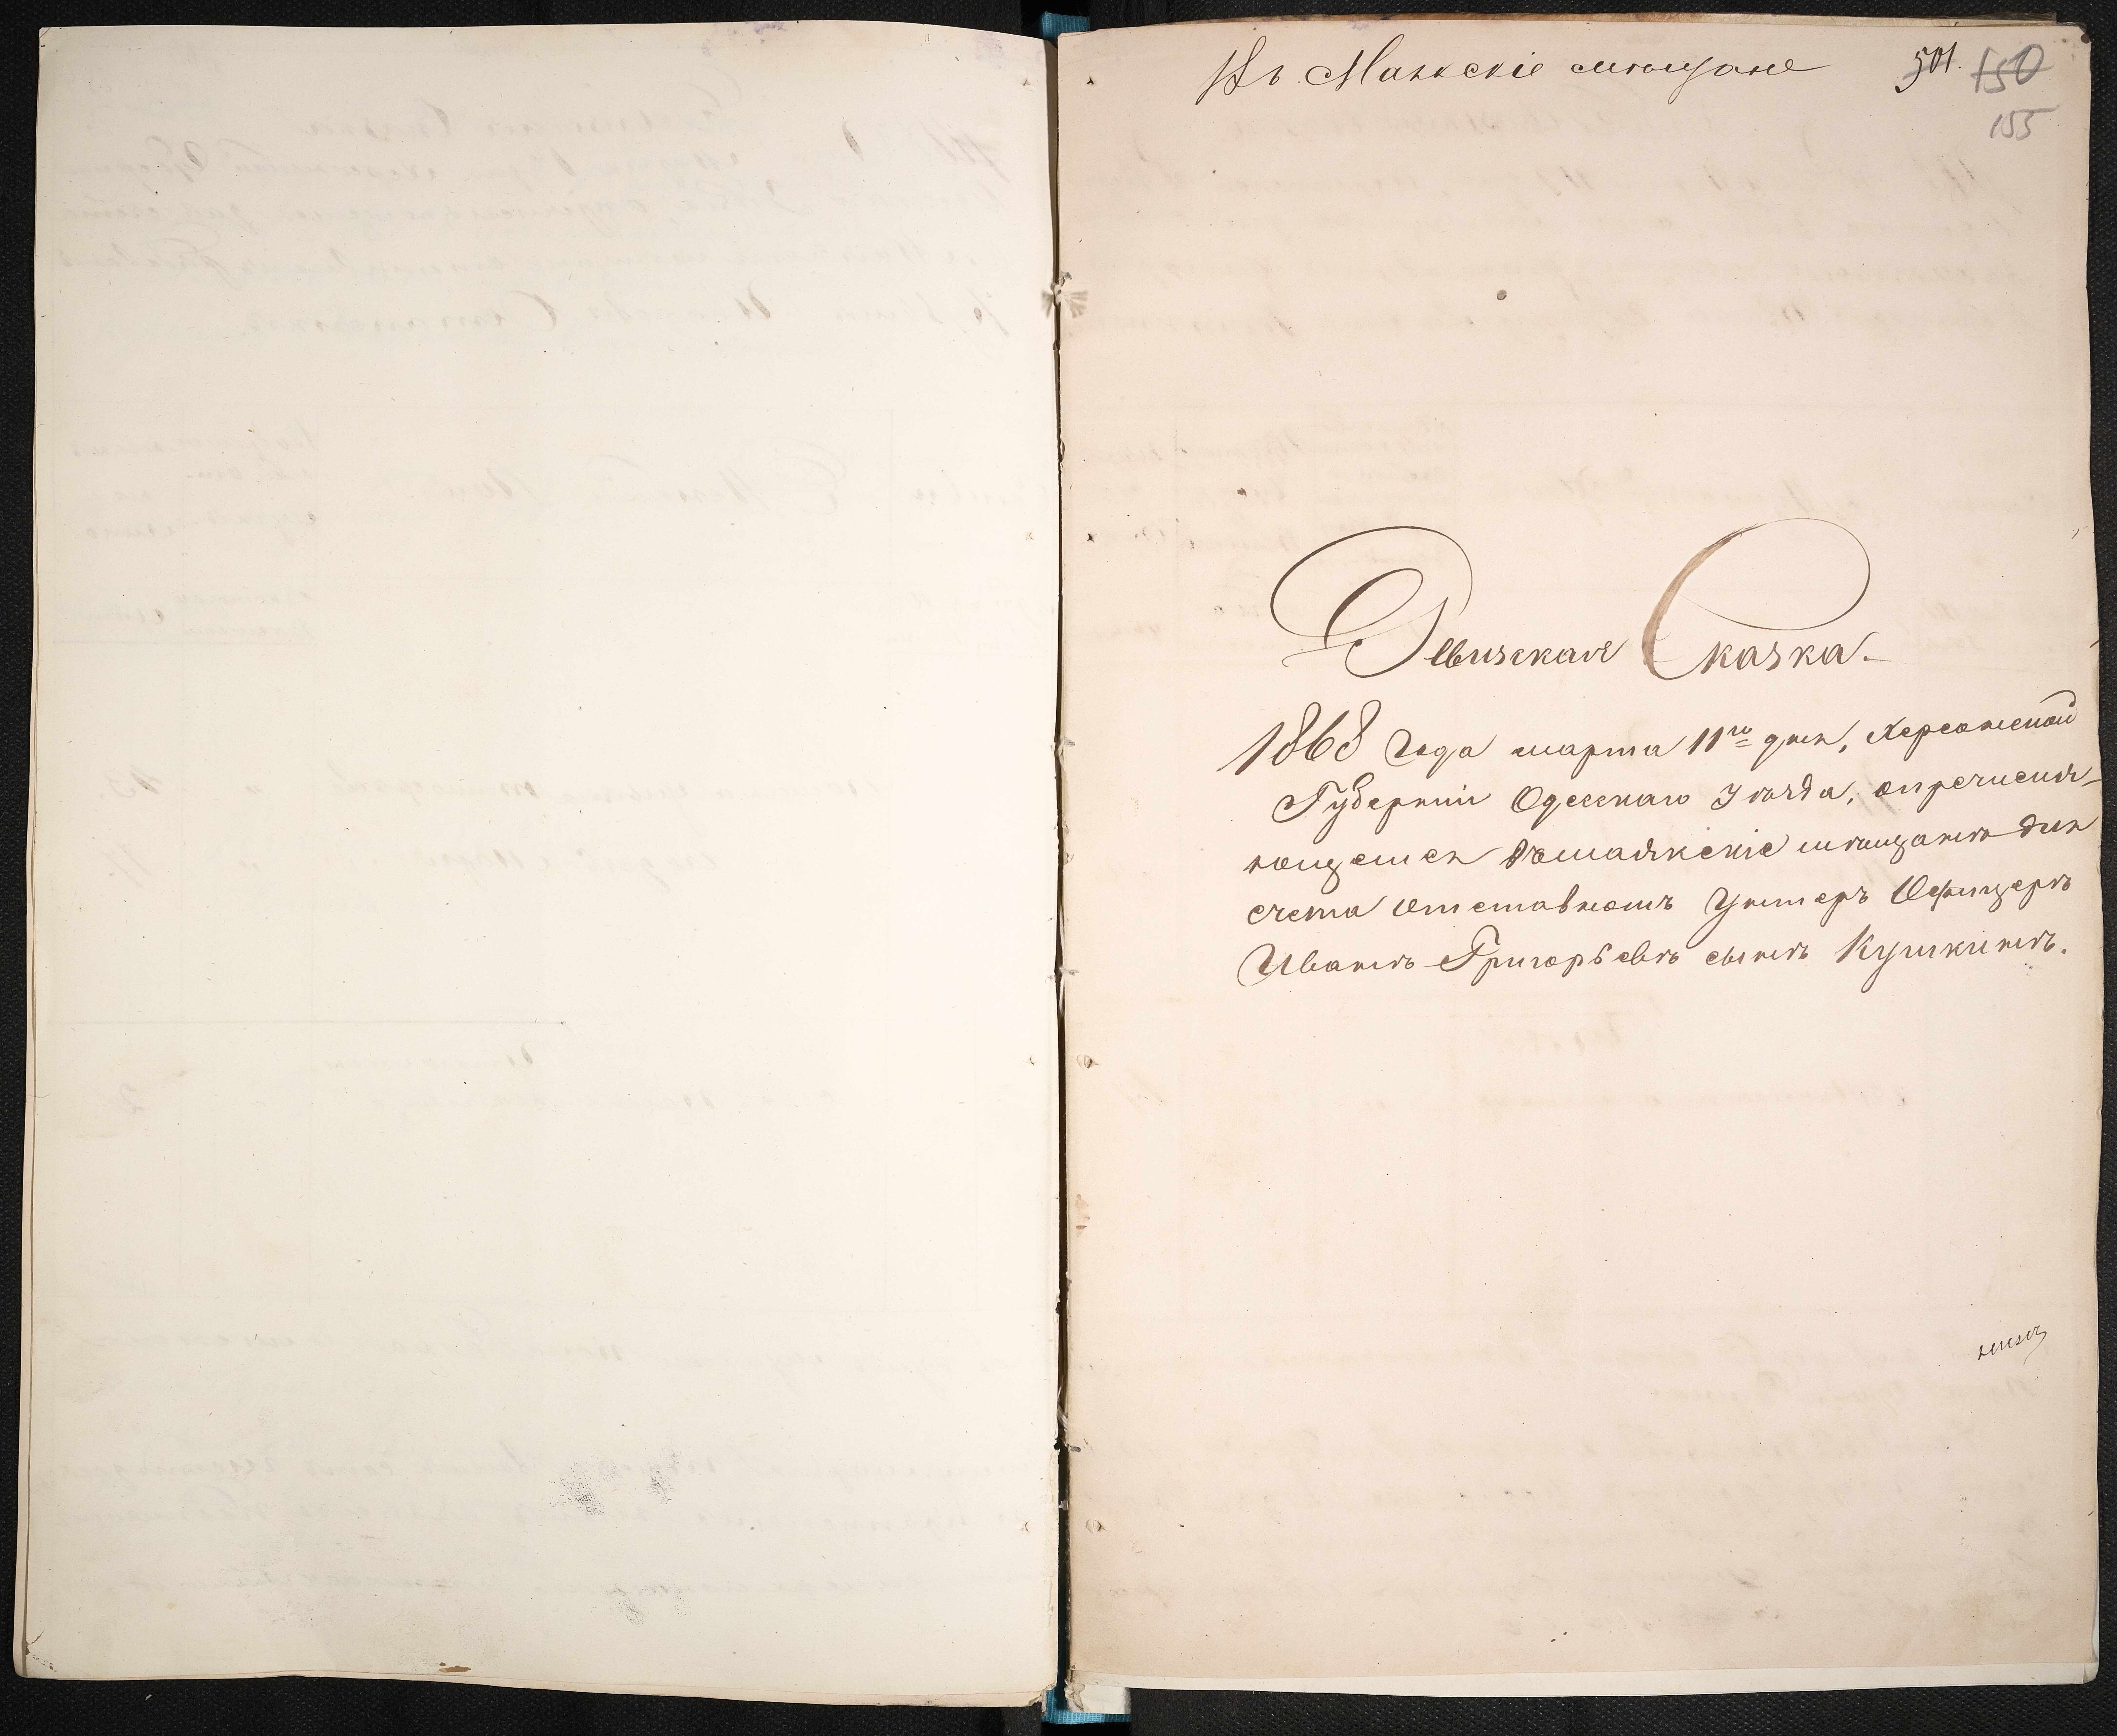 Въ Маякскіе мѣщане 501. 150
155
Ревизская Сказка.
1868 Года марта 11го дня, Херсонской
Губерніи Одесскаго Уѣзда, о пречисля-
ющемся въ маякскіе мѣщанѣ для
счета Отставномъ Унтеръ Офицерѣ
Иванѣ Григорьевѣ сынѣ Кушкинѣ.